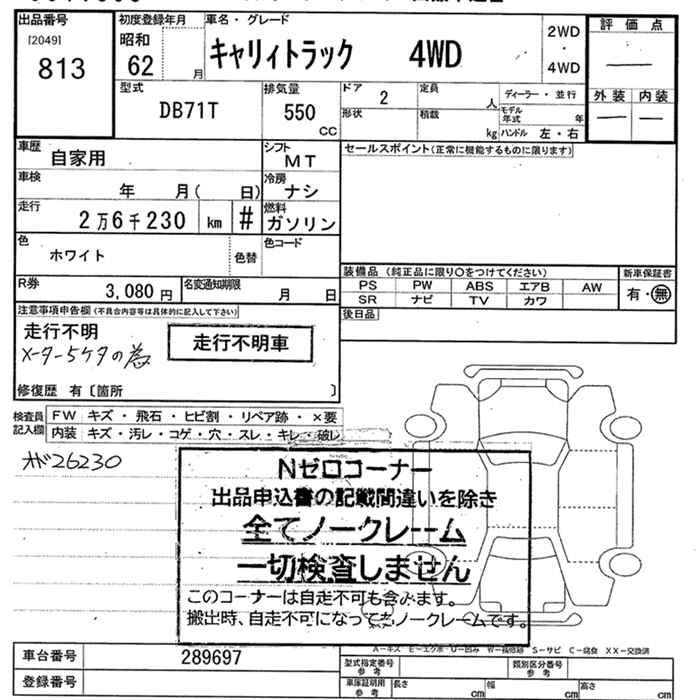 出品番号 初度登録年月 車名・グレード 2WD 評価点
[2049] 昭和 キャリィトラック 4WD ・
813 62 月 4WD
外装 内装
型式 排気量 ドア 2 定員 人 ディーラー・並行
DB71T 550 CC 形状 積載 kg モデル年式 年
ハンドル 左・右
車歴 自家用 シフト MT セールスポイント(正常に機能するものに限ります)
車検 年 月( 日) 冷房 ナシ
走行 2万6千230 km # 燃料 ガソリン
色 ホワイト 色替 色コード
装備品(純正品に限り○をつけてください) 新車保証書
R券 3,080円 名変通知期限 月 日 PS PW ABS エアB AW 有・無
SR ナビ TV カワ
注意事項申告欄(不具合内容等は具体的に記入して下さい) 後日品
走行不明
メーター5ケタの為 走行不明車
修復歴 有〔箇所 〕
検査員記入欄 FW キズ・飛石・ヒビ割・リペア跡・×要
内装 キズ・汚レ・コゲ・穴・スレ・キレ・破レ
オド26230
Nゼロコーナー
出品申込書の記載間違いを除き
全てノークレーム
一切検査しません
このコーナーは自走不可も含みます。
搬出時、自走不可になってもノークレームです。
A-キズ E-エクボ U-凹み W-補修跡 S-サビ C-腐食 XX-交換済
車台番号 289697 型式指定番号 参考 類別区分番号 参考
登録番号 車庫証明用 参考 長さ cm 幅 cm 高さ cm